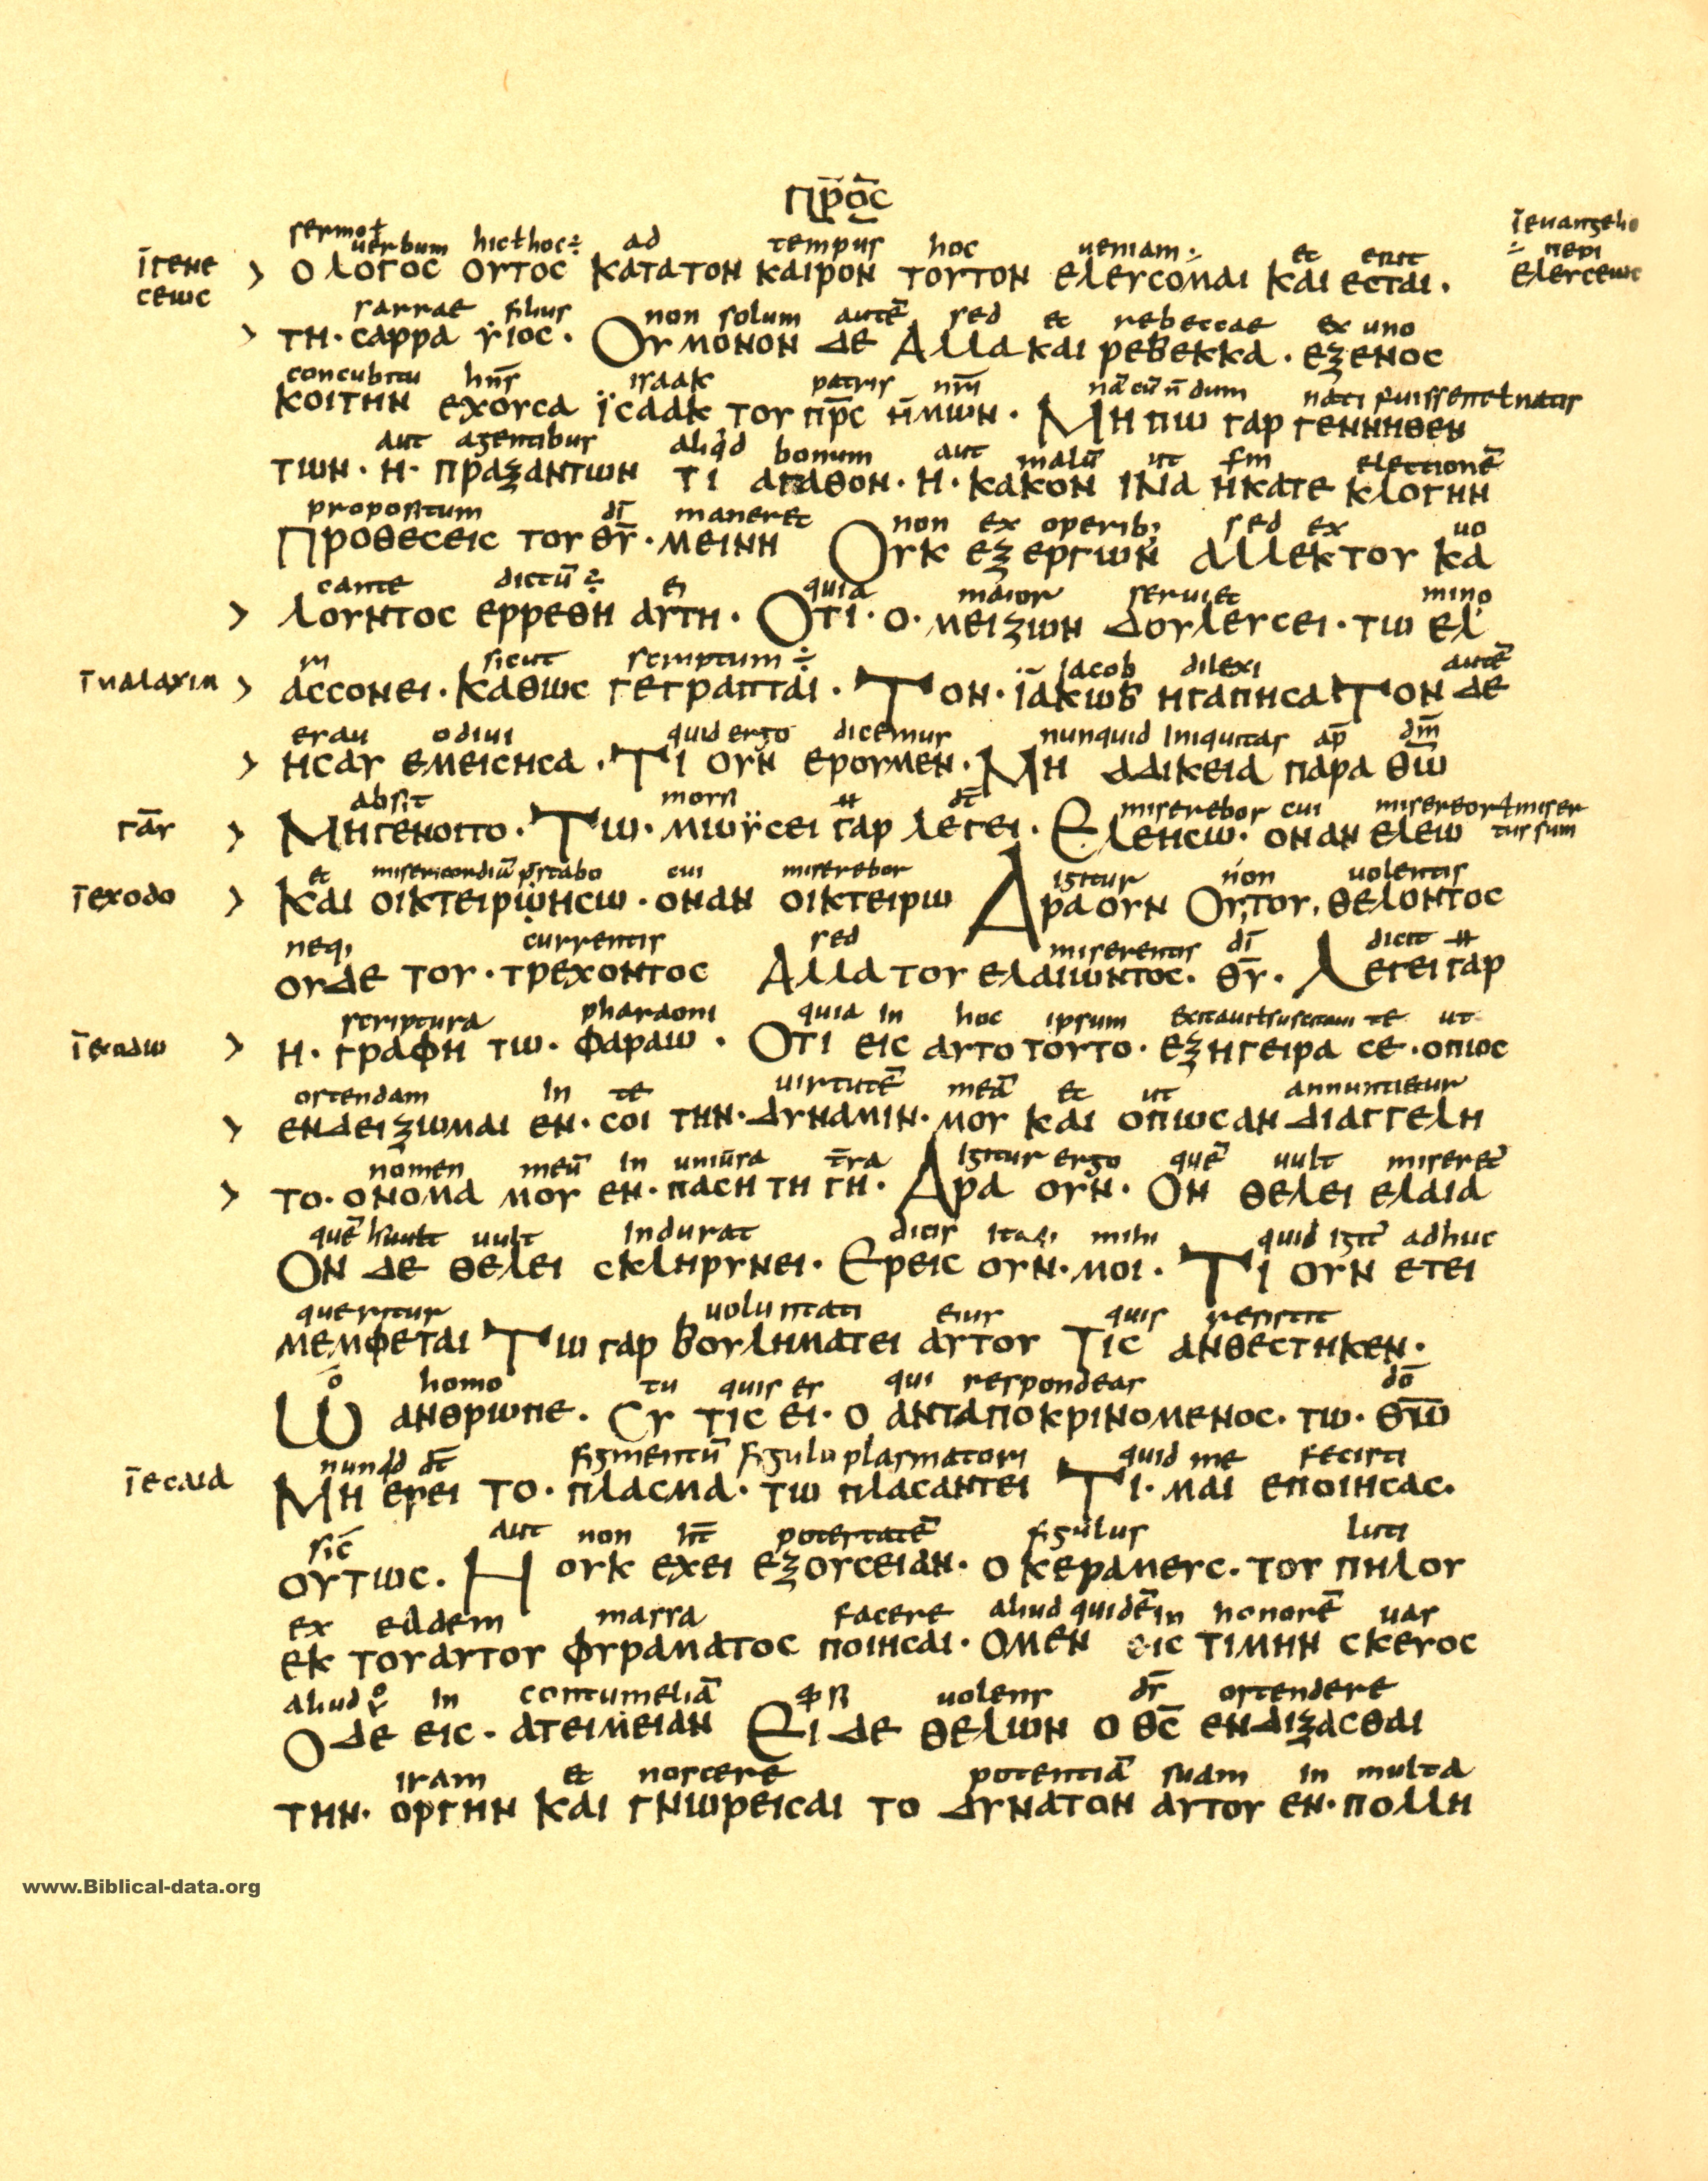 π̅ρ̅ο̅ς̅
sermo ł uerbum hic ł hoc ÷ ad tempus hoc ueniam et erit
ο λογος ουτος κατα τον καιρον τουτον ελευσομαι και εσται ·
ι̅ γενεσεως
ι̅ euangelio ÷ περι ελευσεως
sarrae filius non solum autē sed et rebeccae ex uno
τη · σαρρα υιος · Ου μονον δε Αλλα και ρεβεκκα · εξ ενος
concubitu hn̄s isaak patris nr̄i nā cū n̄ dum nati fuissent ł natis
κοιτην εχουσα ϊσαακ του π̅ρ̅ς̅ ημων · Μη πω γαρ γεννηθεν
aut agentibus aliqd bonum aut malū ut electionē
των · η · πραξαντων τι αγαθον · η · κακον ινα η κατε κλογην
propositum dī maneret non ex operib; sed ex uo
Προθεσεις του θ̅υ̅ · μεινη Ουκ εξ εργων αλλ εκ του κα
cante dictū ÷ ei quia maior seruiet mino
λουντος ερρεθη αυτη · Οτι · ο · μειζων δουλευσει · τω ελ
ri sicut scriptum ÷ iacob dilexi autē
ασσονει · Καθως γεγραπται · Τον · ϊακωβ ηγαπησα Τον δε
ι̅ μαλαχια
esau odiui quid ergo dicemus nunquid iniquitas ap̄ dm̄
ησαυ εμεισησα · Τι ουν ερουμεν · Μη αδικεια παρα θ̅ω̅
absit mosi dc̄ miserebor cui misereor ł misertus sum
Μη γενοιτο · Τω · μωϋσει γαρ λεγει · Ελεησω · ον αν ελεω
γα̅ρ
et misericordiā p̄stabo cui miserebor igitur non uolentis
Και οικτειρωησω · ον αν οικτειρω Αρα ουν Ου του · θελοντος
ι̅ exodo
neq; currentis sed miserentis dī dicit
ουδε του · τρεχοντος Αλλα του ελαιωντος · θ̅υ̅ · Λεγει γαρ
scriptura pharaoni quia in hoc ipsum excitaui ł suscitaui te ut
η · γραφη τω · φαραω · Οτι εις αυτο τουτο · εξηγειρα σε · οπως
ι̅ εξοδω
ostendam in te uirtutē meā et ut annuntietur
ενδειξωμαι εν · σοι την · δυναμιν · μου και οπως αν διαγγελη
nomen meū in uniūsa t̄ra igitur ergo quē uult miseret̄
το · ονομα μου εν · παση τη γη · Αρα ουν · Ον θελει ελαια
quē uult indurat dicis itaq; mihi quid igit̄ adhuc
Ον δε θελει σκληρυνει · Ερεις ουν · μοι · Τι ουν ετει
queritur uoluntati eius quis resistit
μεμφεται Τω γαρ βουλημάτει αυτου Τις ανθεστηκεν ·
o homo tu quis es qui respondeas dō
Ω ανθρωπε · Συ τις ει · ο ανταποκρινομενος · τω · θ̅ω̅
nunqd dc̄ figmentū figulo plasmatori quid me fecisti
Μη ερει το · πλασμα · τω πλασαντει Τι · μαι εποιησας ·
ι̅ εσαια
sic aut non ht̄ potestatē figulus luti
ουτως · Η ουκ εχει εξουσειαν · ο κεραμευς · του πηλου
ex eadem massa facere aliud quidē in honorē uas
εκ του αυτου φυραματος ποιησαι · Ο μεν εις τιμην σκευος
aliud in contumeliā uolens ds̄ ostendere
Ο δε εις · ατειμειαν Ει δε θελων ο θ̅ς̅ ενδιξασθαι
iram et noscere potentiā suam in multa
την · οργην και γνωρεισαι το δυνατον αυτου εν · πολλη
www.Biblical-data.org